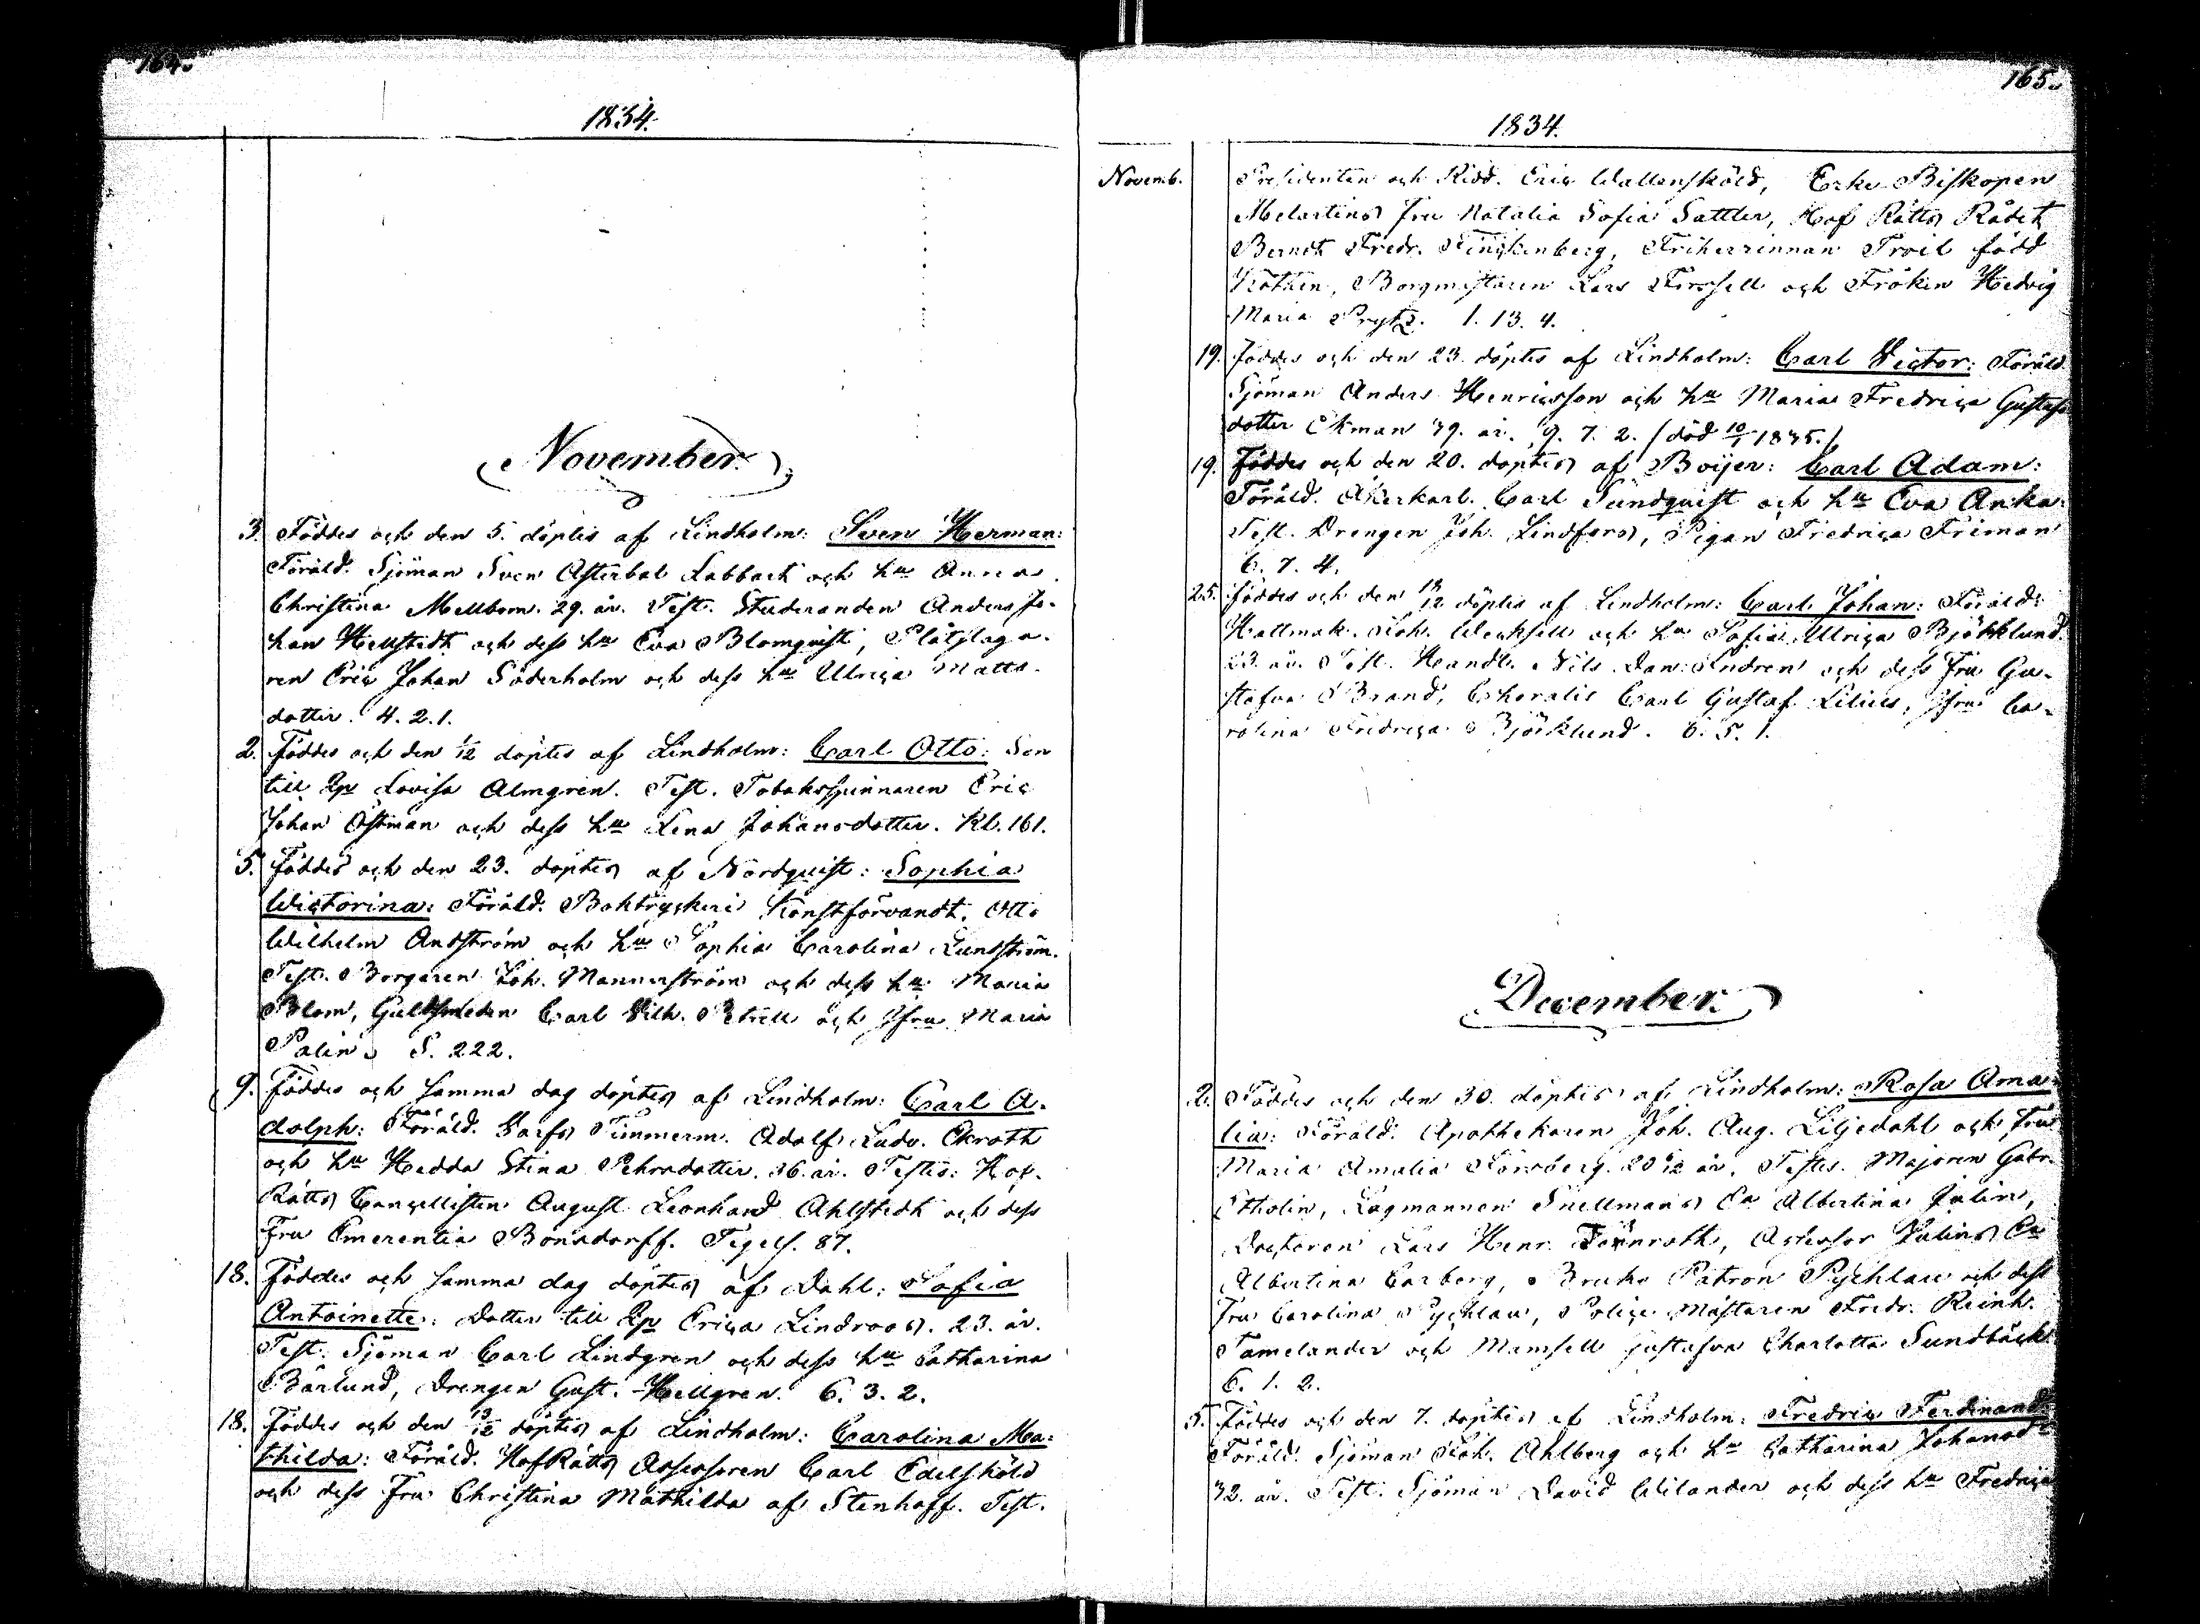 164.
1834.
November.
3. Föddes och den 5. döptes af Lindholm: Sven Herman:
Föräld. Sjöman Sven Asterbal Labbart och hu Anna
Christina Mellbom. 29. år. Test. Studeranden Anders Jo-
han Hellstedt och dess hu Eva Blomquist, Plåtslaga-
ren Eric Johan Söderholm och dess hu Ulrica Matts-
dotter. 4. 2. 1.
2. Föddes och den 1/12 döptes af Lindholm: Carl Otto: Son
till Lovisa Almgren. Test. Tobaksspinnaren Eric
Johan Östman och dess hu Lena Johansdotter. Kl. 161.
5. Föddes och den 23. döptes af Nordquist: Sophia
Wictorina: Föräld. Boktryckeri Konstförvandt. Otto
Wilhelm Andström och hu Sophia Carolina Lundström.
Test. Borgaren Joh. Mannerström och dess hu Maria
Blom, Guldsmeden Carl Wilh. och Jfru Maria
Palin. S. 222.
9. Föddes och samma dag döptes af Lindholm: Carl A-
dolph: Föräld. Varfs Timmerm. Adolf Ludv. Ekroth
och hu Hedda Stina Pehrsdotter. 36. år. Testes: Hof-
Rätts Cancellisten August Leonhard Ahlstedt och dess
Fru Emerentia Bonsdorff. Tegels. 87.
18. Föddes och samma dag döptes af Dahl: Sofia
Antoinette: Dotter till Erica Lindroos. 23. år.
Test. Sjöman Carl Lindgren och dess hu Catharina
Bärlund, Drengen Gust. Hellgren. 6. 3. 2.
18. Föddes och den 13/12 döptes af Lindholm: Carolina Ma-
thilda: Föräld. HofRätts Assessoren Carl Edelsköld
och dess Fru Christina Mathilda af Stenhoff. Test.
165.
1834.
Novemb. Presidenten och Ridd. Eric Wallensköld, Erke Biskopen
Melartins fru Natalia Sofia Sattler, Hof Rätts Rådet
Berndt Fredr. Finckenberg, Friherrinnan Troil född
Köthen, Borgmästaren Lars Forssell och Fröken Hedvig
Maria Prytz. 1. 13. 4.
19. Föddes och den 23. döptes af Lindholm: Carl Victor: Föräld.
Sjöman Anders Henricsson och hu Maria Fredrica Gustafs-
dotter Ekman 39. år. 9. 7. 2. /död 10/1 1835./
19. Föddes och den 20. döptes af Boijer: Carl Adam:
Föräld. Åkerkarl. Carl Sundquist och hu Eva Anka.
Test. Drengen Joh. Lindfors, Pigan Fredrica Friman
6. 7. 4.
25. Föddes och den 12 döptes af Lindholm: Carl Johan: Föräld.
Hattmak. Joh. Wecksell och hu Sofia Ulrica Björklund.
23. år. Test. Handl. Nils Dan. Indren och dess Fru Gu-
stafva Brand, Choralis Carl Gustaf Lilius, Jfru Ca-
rolina Fredrica Björklund. 6. 5. 1.
December.
2. Föddes och den 30. döptes af Lindholm: Rosa Ama-
lia: Föräld. Apothekaren Joh. Aug. Liljedahl och fru
Maria Amalia år. Testes. Majoren Gabr.
Etholin, Lagmannen Snellmans Ea Albertina Julin,
Doctoren Lars Henr. Törnroth, Assessor Julins Ea
Albertina Carborg, Bruks Patron Pychlau och dess
Fru Carolina Pychlau, Police Mästaren Fredr. Reinh.
Tamelander och Mamsell Gustafva Charlotta Sundbäck
6. 1. 2.
5. Föddes och den 7. döptes af Lindholm: Fredric Ferdinand:
Föräld. Sjöman Joh. Ahlberg och hu Catharina Johansdr
32. år. Test. Sjöman David Wilander och dess hu Fredrica